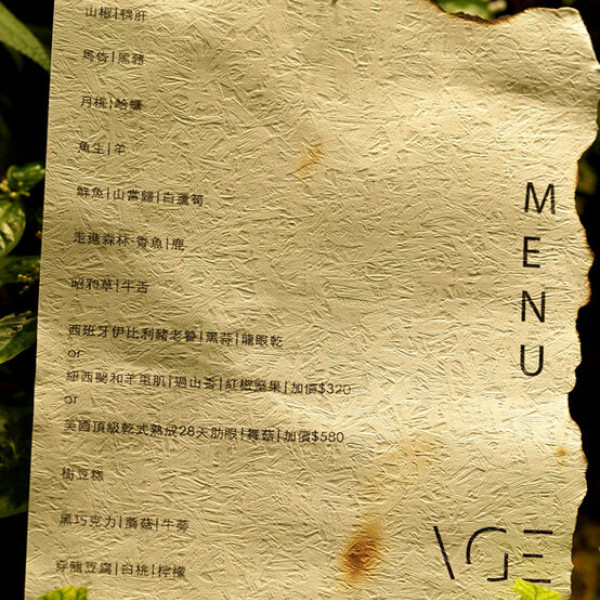 山椒|鴨肝
馬告|黑豬
月桃|蛤蠣
魚生|羊
鮮魚|山當歸|白蘆筍
走進森林-香魚|鹿
昭和草|牛舌
西班牙伊比利豬老饕|黑蒜|龍眼乾
or
紐西蘭和羊里肌|過山香|紅橙堅果|加價$320
or
美國頂級乾式熟成28天肋眼|舞菇|加價$580
樹豆糕
黑巧克力|蘑菇|牛蒡
穿龍豆腐|白桃|檸檬
MENU
AGE